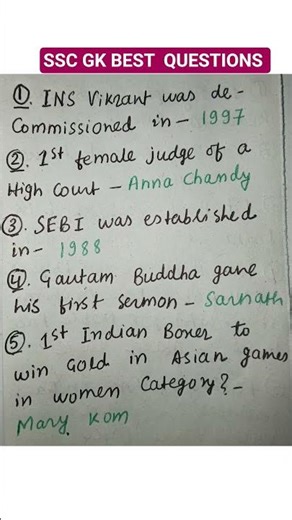 SSC GK BEST QUESTIONS
①. INS Vikrant was de-
Commissioned in - 1997
②. 1st female judge of a
High Court - Anna Chandy
③. SEBI was established
in - 1988
④. Gautam Buddha gave
his first Sermon - Sarnath
⑤. 1st Indian Boxer to
win Gold in Asian games
in women Category? -
Mary Kom